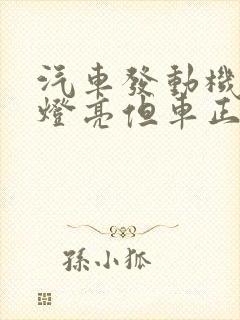 汽車發動機
燈亮但車正
孫小狐